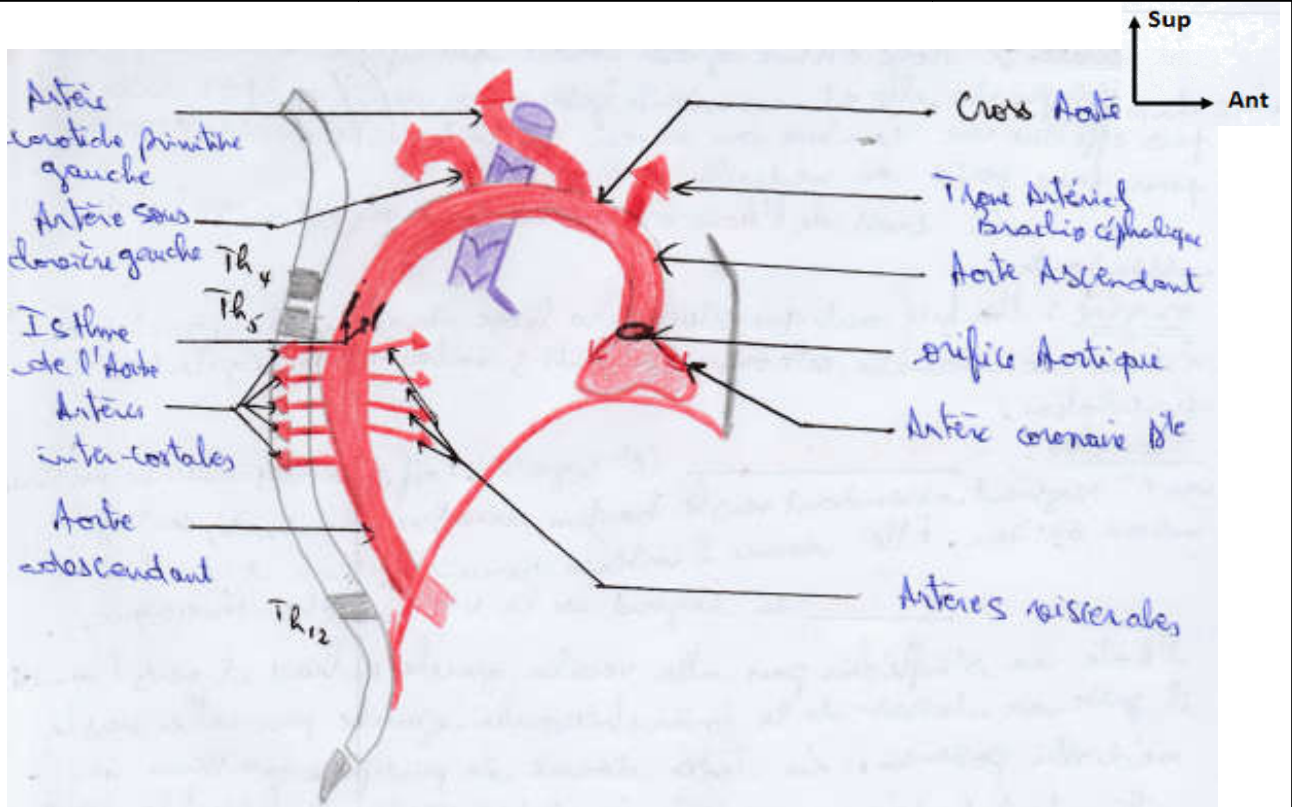 Sup
Ant
Artère
carotide primitive
gauche
Artère sous
clavière gauche
Th4
Th5
Isthme
de l'Aorte
Artères
inter-costales
Aorte
descendant
Th12
Cross Aorte
Tronc Artériel
Brachio céphalique
Aorte Ascendant
orifice Aortique
Artère coronaire Dte
Artères viscerales